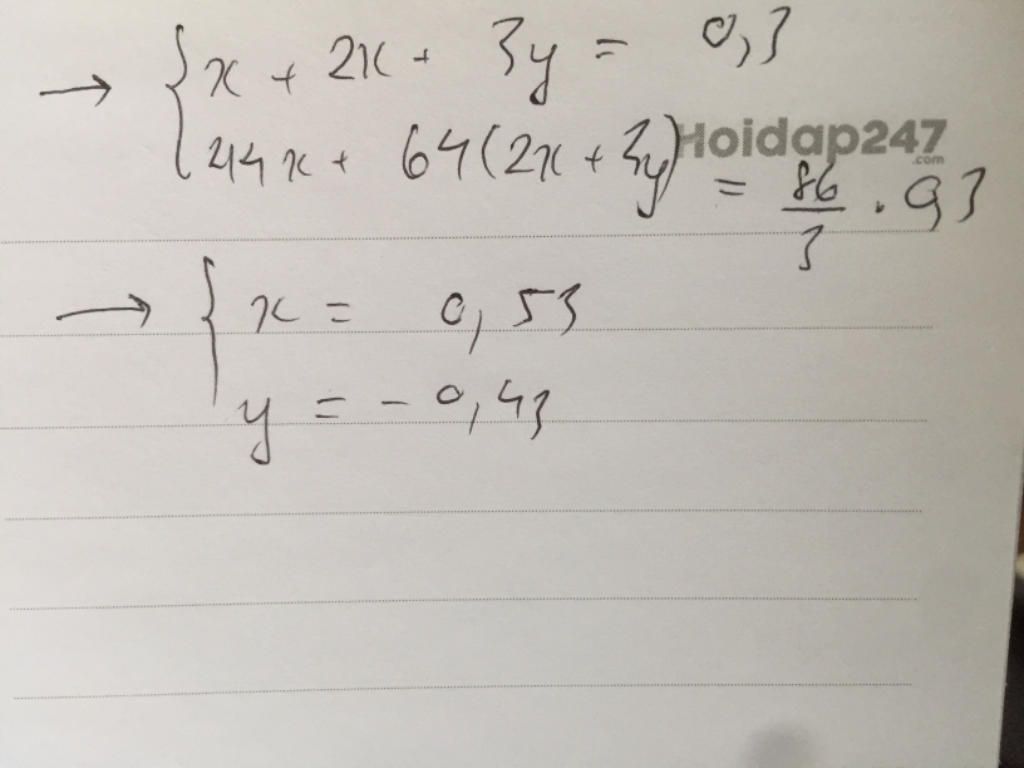 → { x + 2x + 3y = 0,3
44x + 64(2x + 3y) = 86/3 . 0,3
Hoidap247
.com
→ { x = 0,53
y = - 0,43